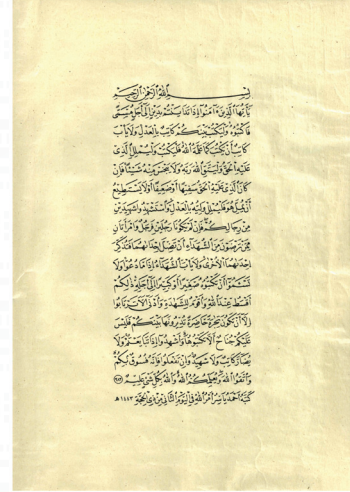 بسم الله الرحمن الرحيم
يَا أَيُّهَا الَّذِينَ ءَامَنُوا إِذَا تَدَايَنتُم بِدَيْنٍ إِلَى أَجَلٍ مُّسَمًّى
فَاكْتُبُوهُ وَلْيَكْتُب بَّيْنَكُمْ كَاتِبٌ بِالْعَدْلِ وَلَا يَأْبَ
كَاتِبٌ أَن يَكْتُبَ كَمَا عَلَّمَهُ اللَّهُ فَلْيَكْتُبْ وَلْيُمْلِلِ الَّذِي
عَلَيْهِ الْحَقُّ وَلْيَتَّقِ اللَّهَ رَبَّهُ وَلَا يَبْخَسْ مِنْهُ شَيْئًا فَإِن
كَانَ الَّذِي عَلَيْهِ الْحَقُّ سَفِيهًا أَوْ ضَعِيفًا أَوْ لَا يَسْتَطِيعُ
أَن يُمِلَّ هُوَ فَلْيُمْلِلْ وَلِيُّهُ بِالْعَدْلِ وَاسْتَشْهِدُوا شَهِيدَيْنِ
مِن رِّجَالِكُمْ فَإِن لَّمْ يَكُونَا رَجُلَيْنِ فَرَجُلٌ وَامْرَأَتَانِ
مِمَّن تَرْضَوْنَ مِنَ الشُّهَدَاءِ أَن تَضِلَّ إِحْدَاهُمَا فَتُذَكِّرَ
إِحْدَاهُمَا الْأُخْرَى وَلَا يَأْبَ الشُّهَدَاءُ إِذَا مَا دُعُوا وَلَا
تَسْأَمُوا أَن تَكْتُبُوهُ صَغِيرًا أَوْ كَبِيرًا إِلَى أَجَلِهِ ذَلِكُمْ
أَقْسَطُ عِندَ اللَّهِ وَأَقْوَمُ لِلشَّهَادَةِ وَأَدْنَى أَلَّا تَرْتَابُوا
إِلَّا أَن تَكُونَ تِجَارَةً حَاضِرَةً تُدِيرُونَهَا بَيْنَكُمْ فَلَيْسَ
عَلَيْكُمْ جُنَاحٌ أَلَّا تَكْتُبُوهَا وَأَشْهِدُوا إِذَا تَبَايَعْتُمْ وَلَا
يُضَارَّ كَاتِبٌ وَلَا شَهِيدٌ وَإِن تَفْعَلُوا فَإِنَّهُ فُسُوقٌ بِكُمْ
وَاتَّقُوا اللَّهَ وَيُعَلِّمُكُمُ اللَّهُ وَاللَّهُ بِكُلِّ شَيْءٍ عَلِيمٌ ٢٨٢
كتبه أحمد ياسر أمر الله في اليوم الثاني من ذي الحجة ١٤٤٣هـ